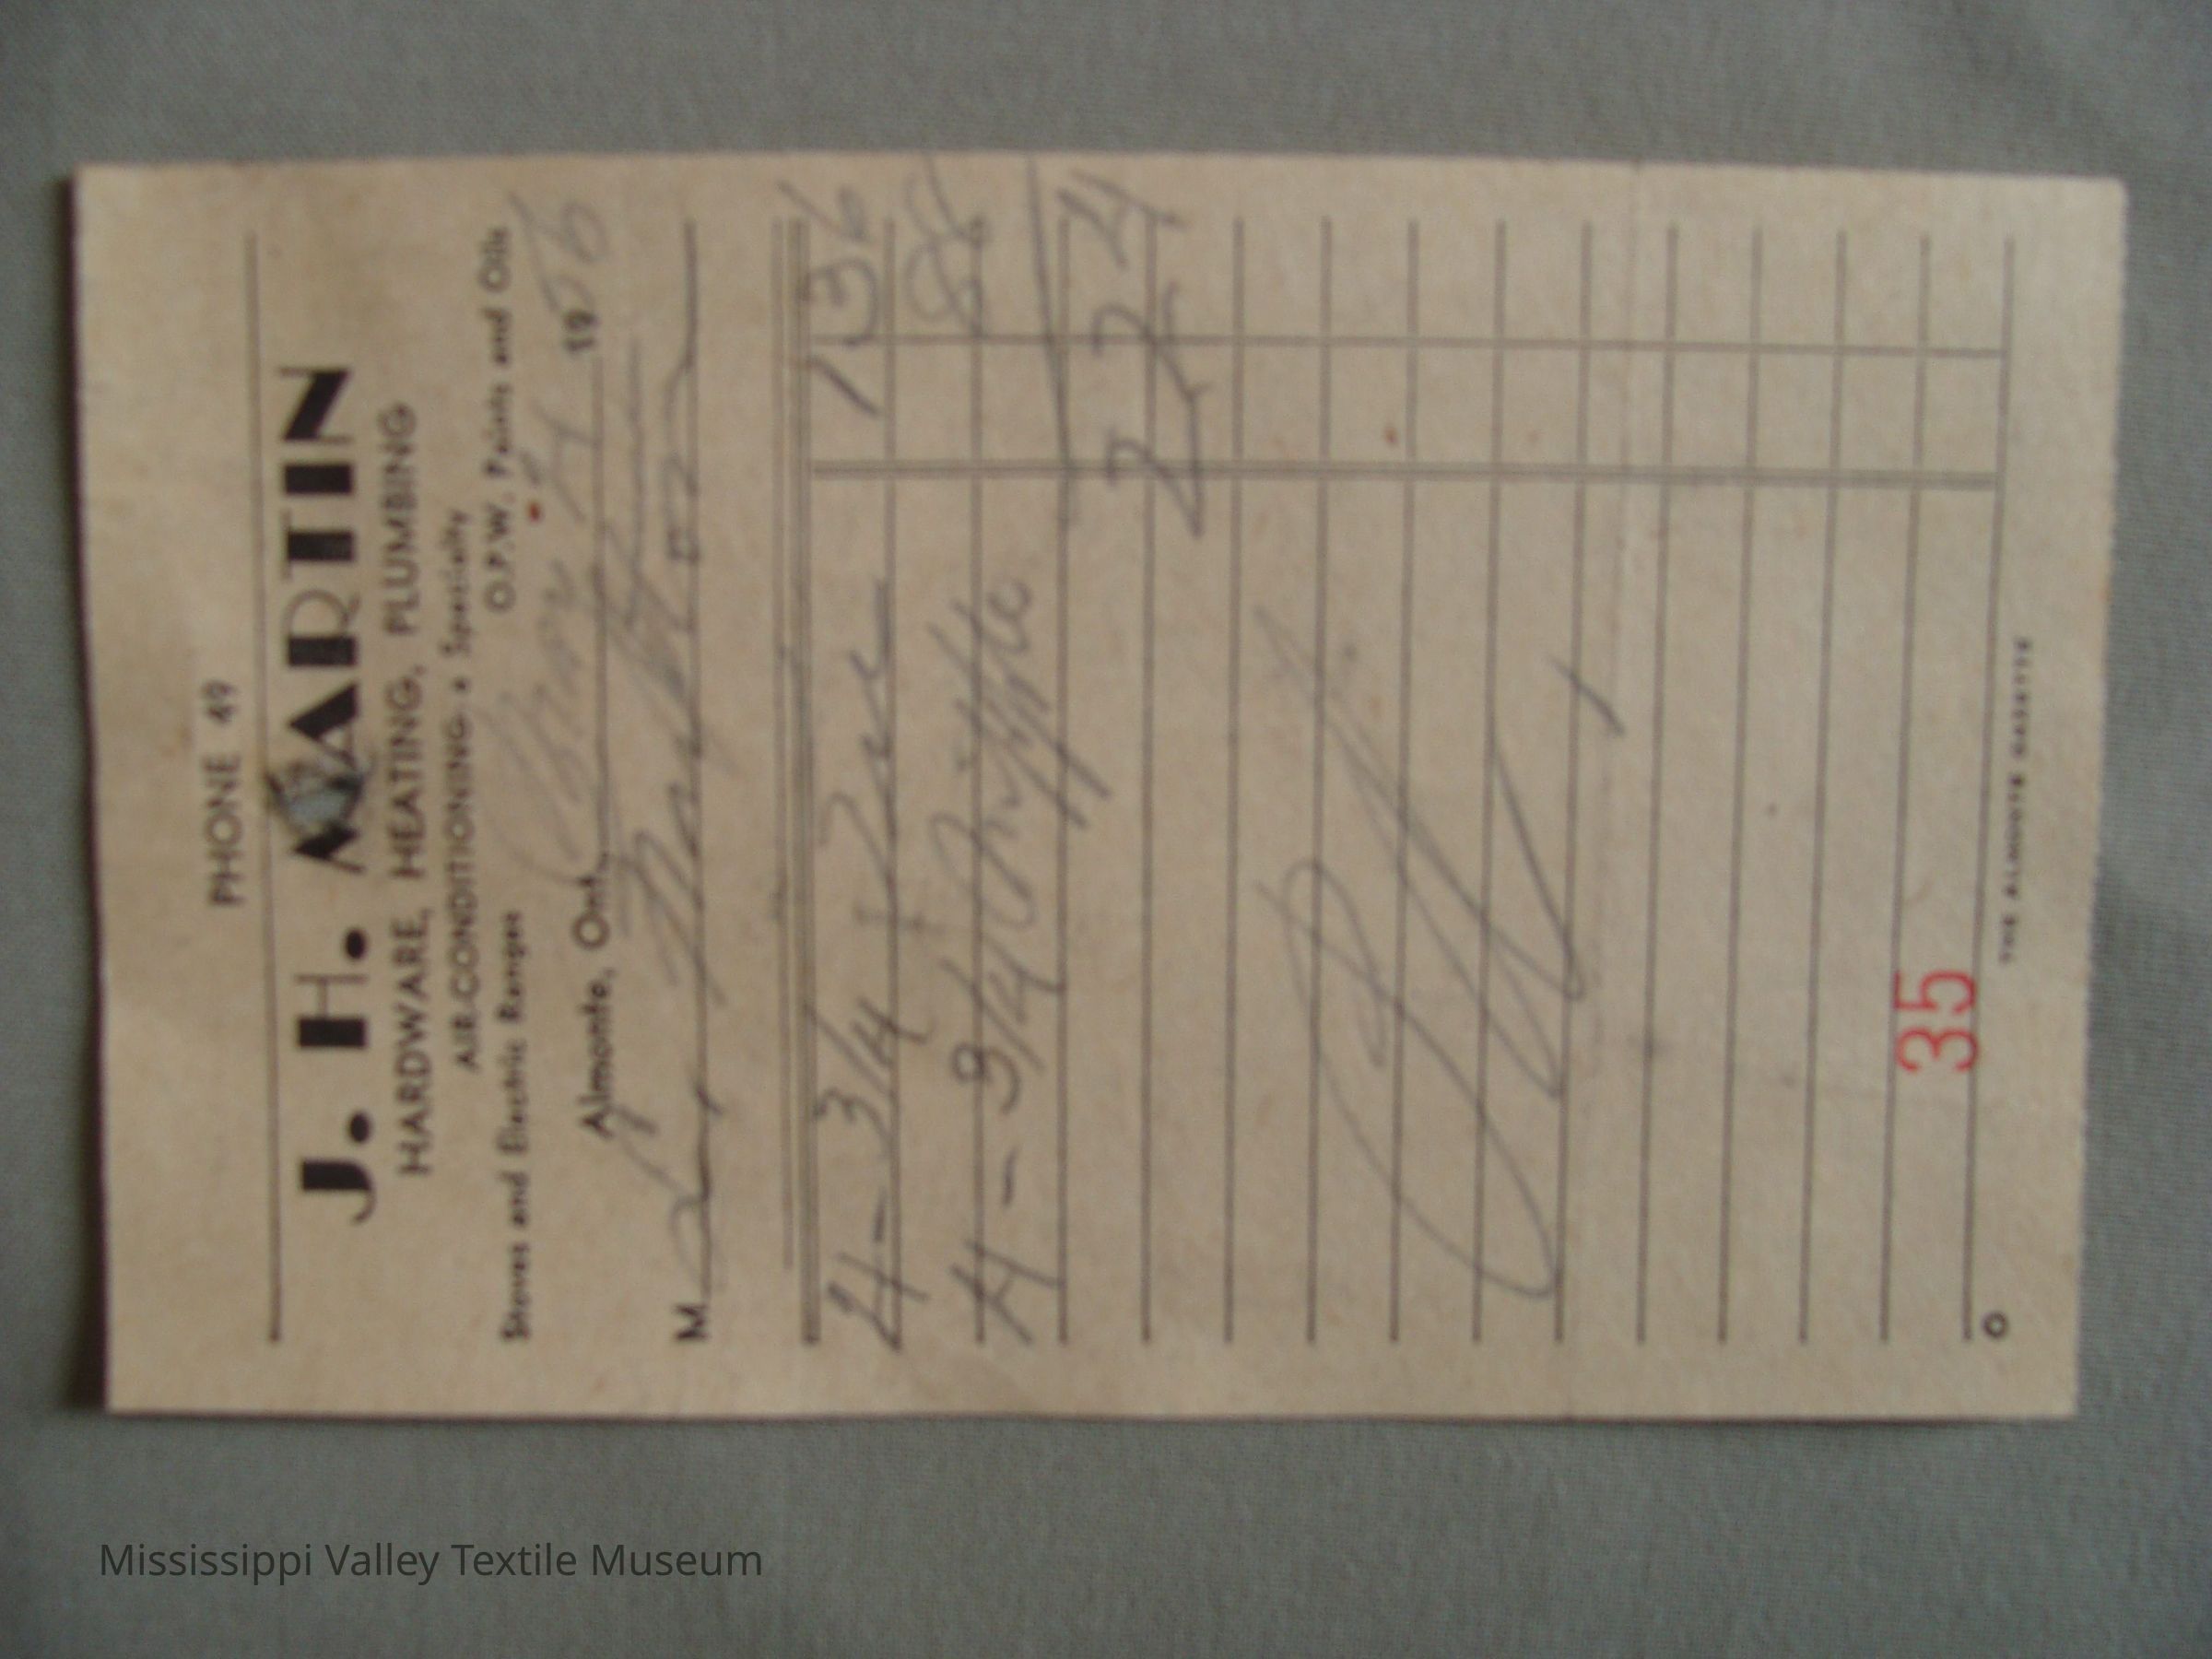 PHONE 49
J. H. MARTIN
HARDWARE, HEATING, PLUMBING
AIR-CONDITIONING a Specialty
Stoves and Electric Ranges O.P.W. Paints and Oils
Almonte, Ont. 4 1956
M
4 - 3/4 Tee 1 36
4 - 3/4 88
2 24
35
THE ALMONTE GAZETTE
Mississippi Valley Textile Museum